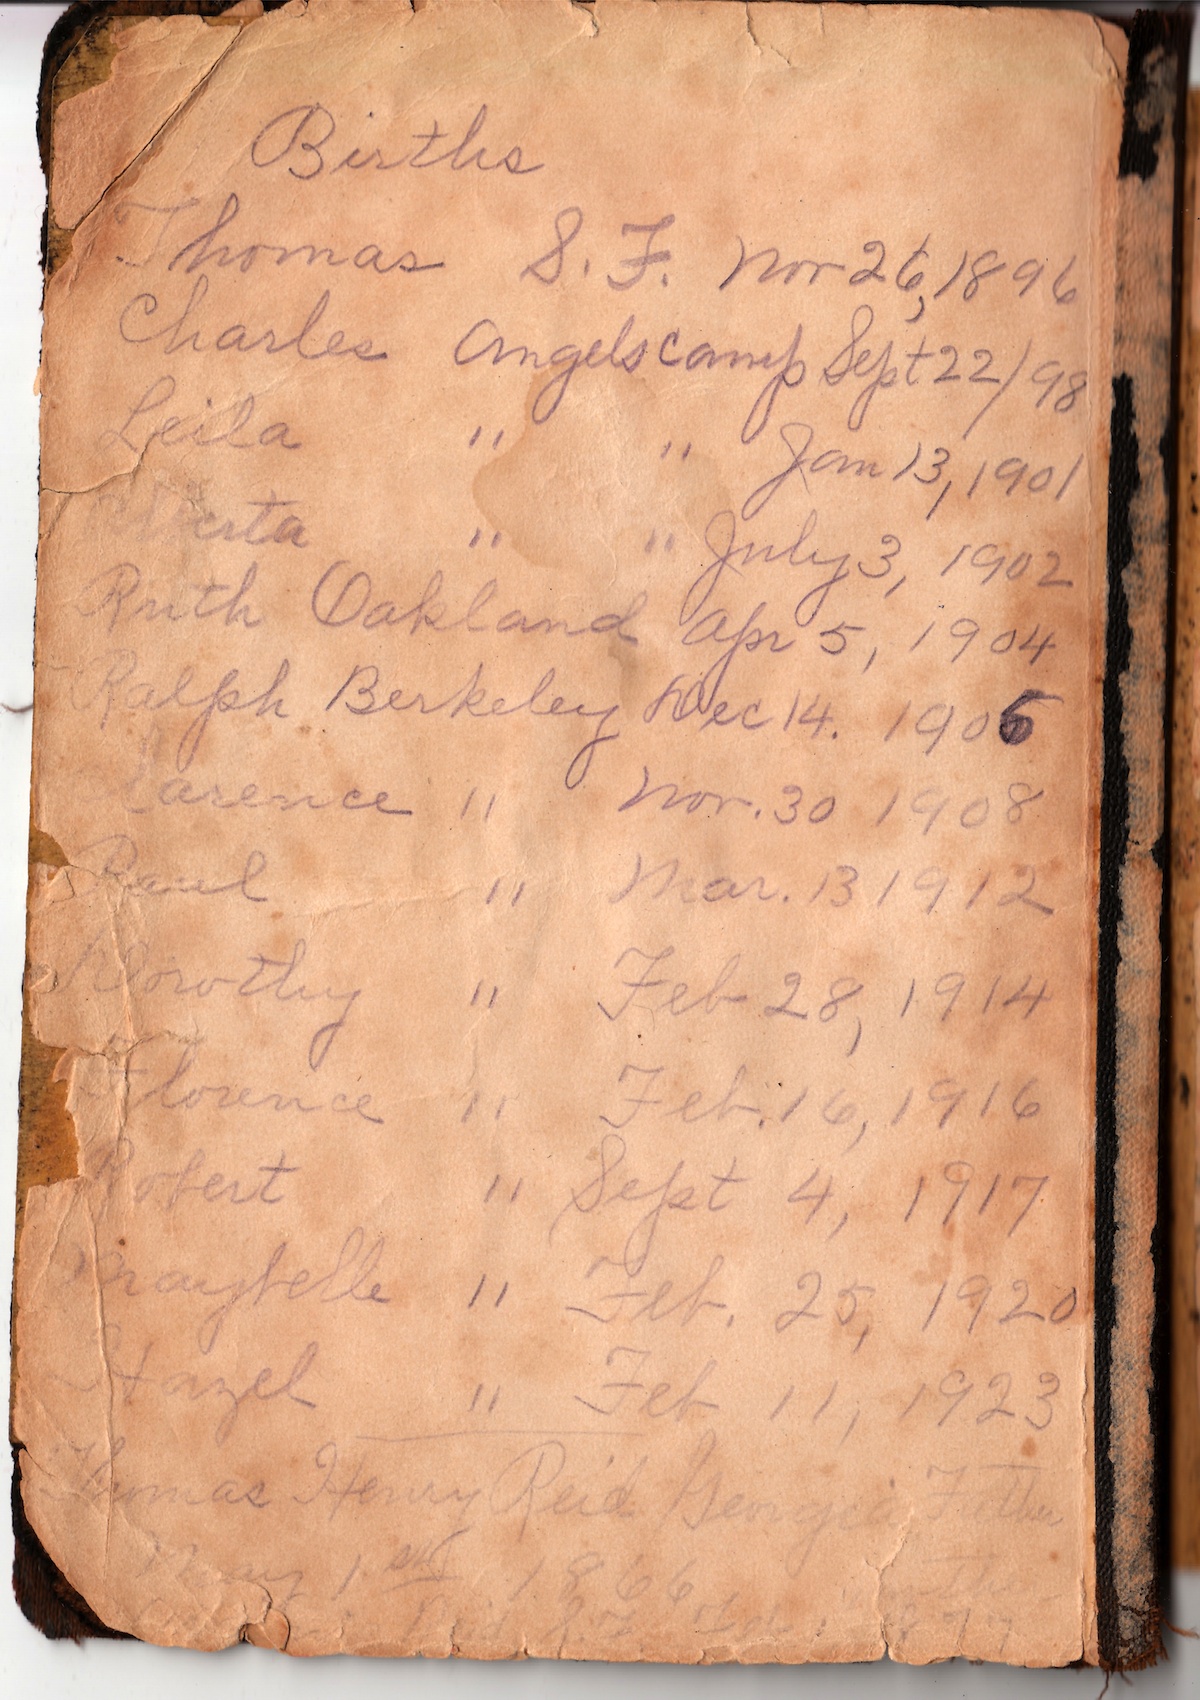 Births
Thomas S. F. Nov 26, 1896
Charles Angelscamp Sept 22/98
Leila " " Jan 13, 1901
" " July 3, 1902
Ruth Oakland Apr 5, 1904
Ralph Berkeley Dec 14. 1906
Clarence " Nov. 30 1908
Paul " Mar. 13 1912
Dorothy " Feb 28, 1914
Florence " Feb. 16, 1916
Robert " Sept 4, 1917
Maybelle " Feb. 25, 1920
Hazel " Feb 11, 1923
Thomas Henry Reid Georgia Father
May 1st 1866
S. F. Feb 1877